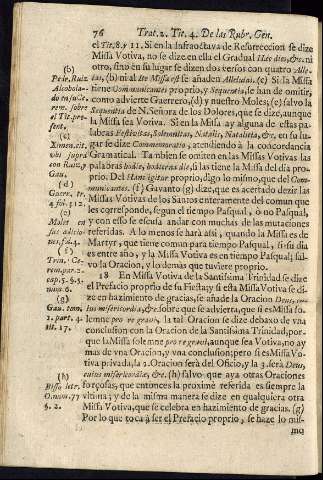 76 Trat. 2. Tit. 4. De las Rubr. Gen.
el Tit. 8. y 11. Si en la Infraoctava de Resurreccion se dize
Missa Votiva, no se dize en ella el Gradual Hæc dies, &c. ni
otro, sino en su lugar se dizen dos versos con quatro Alle-
luias, (b) ni al Ite Missa est se añaden Alleluias. (c) Si la Missa
tiene Communicantes proprio, y Sequentia, se han de omitir,
como advierte Guerrero, (d) y nuestro Moles, (e) salvo la
Sequentia de N. Señora de los Dolores, que se dize, aunque
la Missa sea Votiva. Si en la Missa ay alguna de estas pa-
labras Festivitas, Solemnitas, Natalis, Natalitia, &c. en su lu-
gar se dize Commemoratio, atendiendo à la concordancia
Gramatical. Tambien se omiten en las Missas Votivas las
palabras hodie, hodierna die, si las tiene la Missa del dia pro-
prio. Del Hanc igitur proprio, digo lo mismo, que del Com-
municantes. (f) Gavanto (g) dize, que es acertado dezir las
Missas Votivas de los Santos enteramente del comun que
les corresponde, segun el tiempo Pasqual, ò no Pasqual,
y con esso se escusa andar con muchas de las mutaciones
referidas. A lo menos se harà assi, quando la Missa es de
Martyr, que tiene comun para tiempo Pasqual, si su dia
es entre año, y la Missa Votiva es en tiempo Pasqual; sal-
vo la Oracion, y lo demàs que tuviere proprio.
18 En Missa Votiva de la Santissima Trinidad se dize
el Prefacio proprio de su Fiesta; y si esta Missa Votiva se di-
ze en hazimiento de gracias, se añade la Oracion Deus, cu-
ius misericordiæ, &c. sobre que se advierta, que si es Missa so-
lemne pro re gravi, la tal Oracion se dize debaxo de vna
conclusion con la Oracion de la Santissima Trinidad, por-
que la Missa solemne pro re gravi, aunque sea Votiva, no ay
mas de vna Oracion, y vna conclusion; pero si es Missa Vo-
tiva privada, la 2. Oracion serà del Oficio, y la 3. serà Deus,
cuius misericordiæ, &c. (h) salvo que aya otras Oraciones
forçosas, que entonces la proximè referida es siempre la
vltima; y de la misma manera se dize en qualquiera otra
Missa Votiva, que se celebra en hazimiento de gracias. (g)
Por lo que toca à ser el Prefacio proprio, se haze lo mis-
mo
(b)
Alcobala-
(c)
Ximen. cit.
vbi suprà
con Ruiz, y
Gau.
(d)
4. fol. 112.
(e)
Moles en
sus adicio-
(f)
(g)
Gau. tom.
2. part. 4.
tit. 17.
(h)
Bisso litt.
O. num. 77
§. 2.